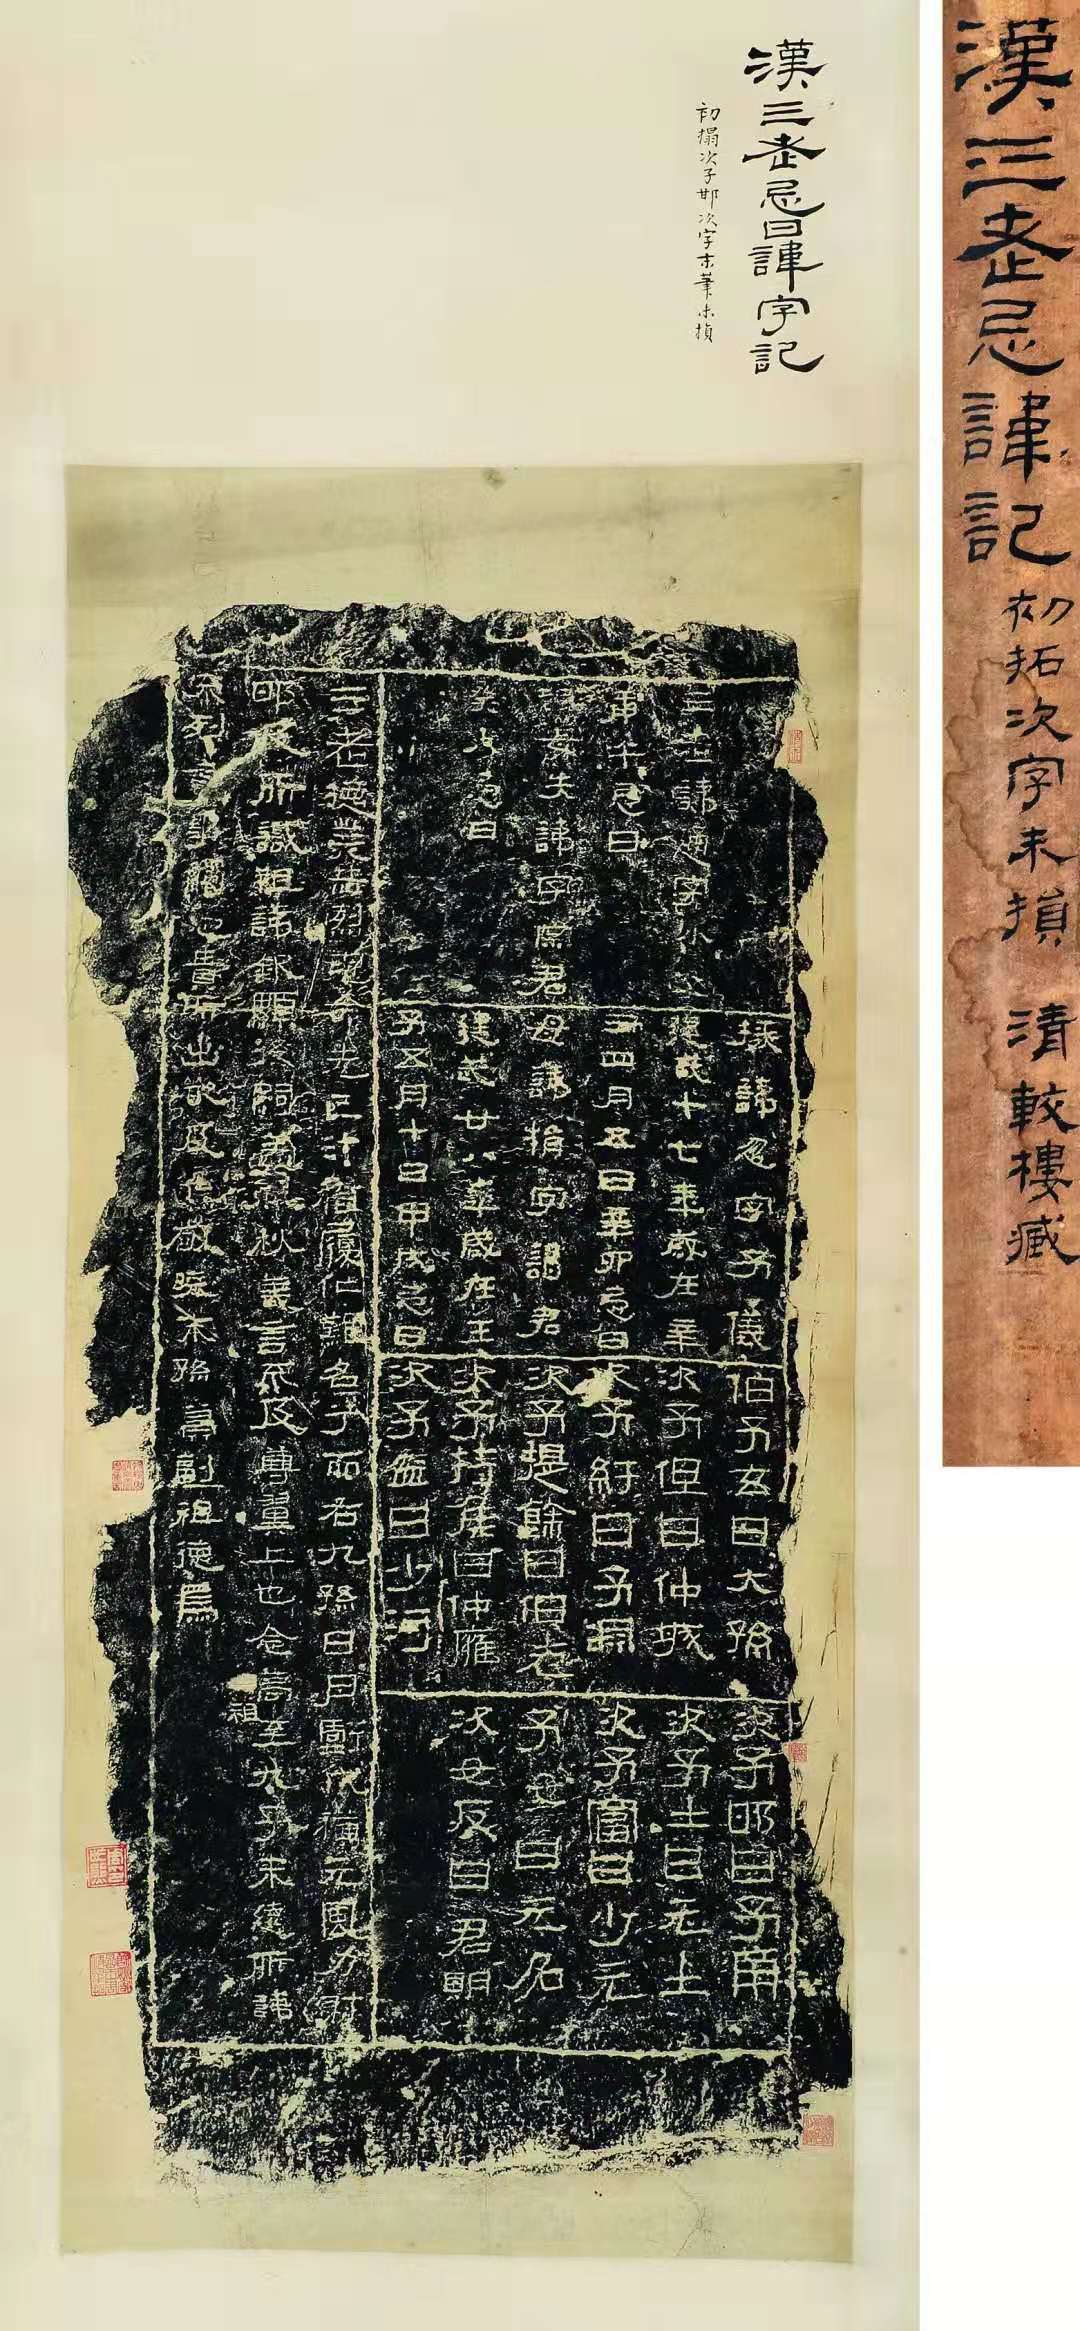 漢三老忌日諱字記
初搨次子邯次字末筆未損
三老諱通字小父
庚午忌日
祖母失諱字宗君
癸未忌日
掾諱忽字子儀
建武十七年歲在辛
丑四月五日辛卯忌日
母諱捐字謁君
建武廿八年歲在壬
子五月十日甲戌忌日
伯子玄曰大孫
次子但曰仲城
次子紆曰子淵
次子提餘曰伯老
次子持侯曰仲廱
次子盆曰少河
次子邯曰子南
次子士曰元士
次子富曰少元
子女曰无名
次女反曰君明
三老德業赫烈克命先己汁稽履仁難名兮而右九孫日月虧代猶元風力射
邯及所識祖諱欽顯後嗣蓋春秋義言不及尊翼上也念高祖至九子未遠所諱
不列言事觸忌貴所出嚴及焦敬曉末孫冀副祖德焉
漢三老忌諱記
初拓次字未損
清較樓臧